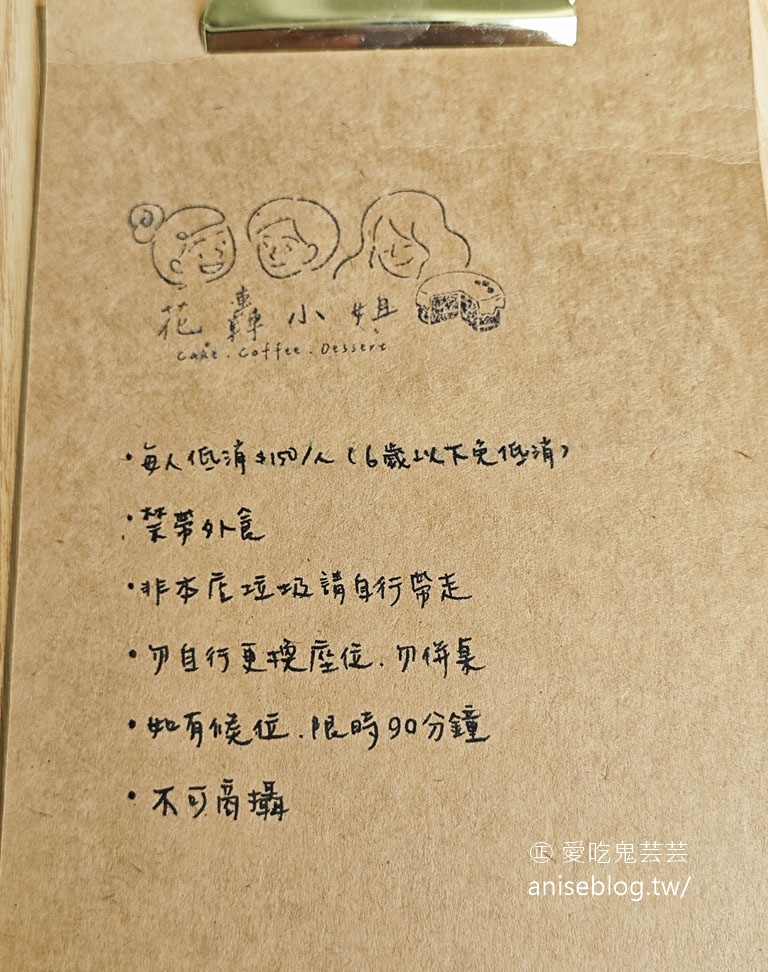 花轟小姐
Cake . Coffee . Dessert
・每人低消$150/人(6歲以下免低消)
・禁帶外食
・非本店垃圾請自行帶走
・勿自行更換座位、勿併桌
・如有候位、限時90分鐘
・不可商攝
正 愛吃鬼芸芸
aniseblog.tw/